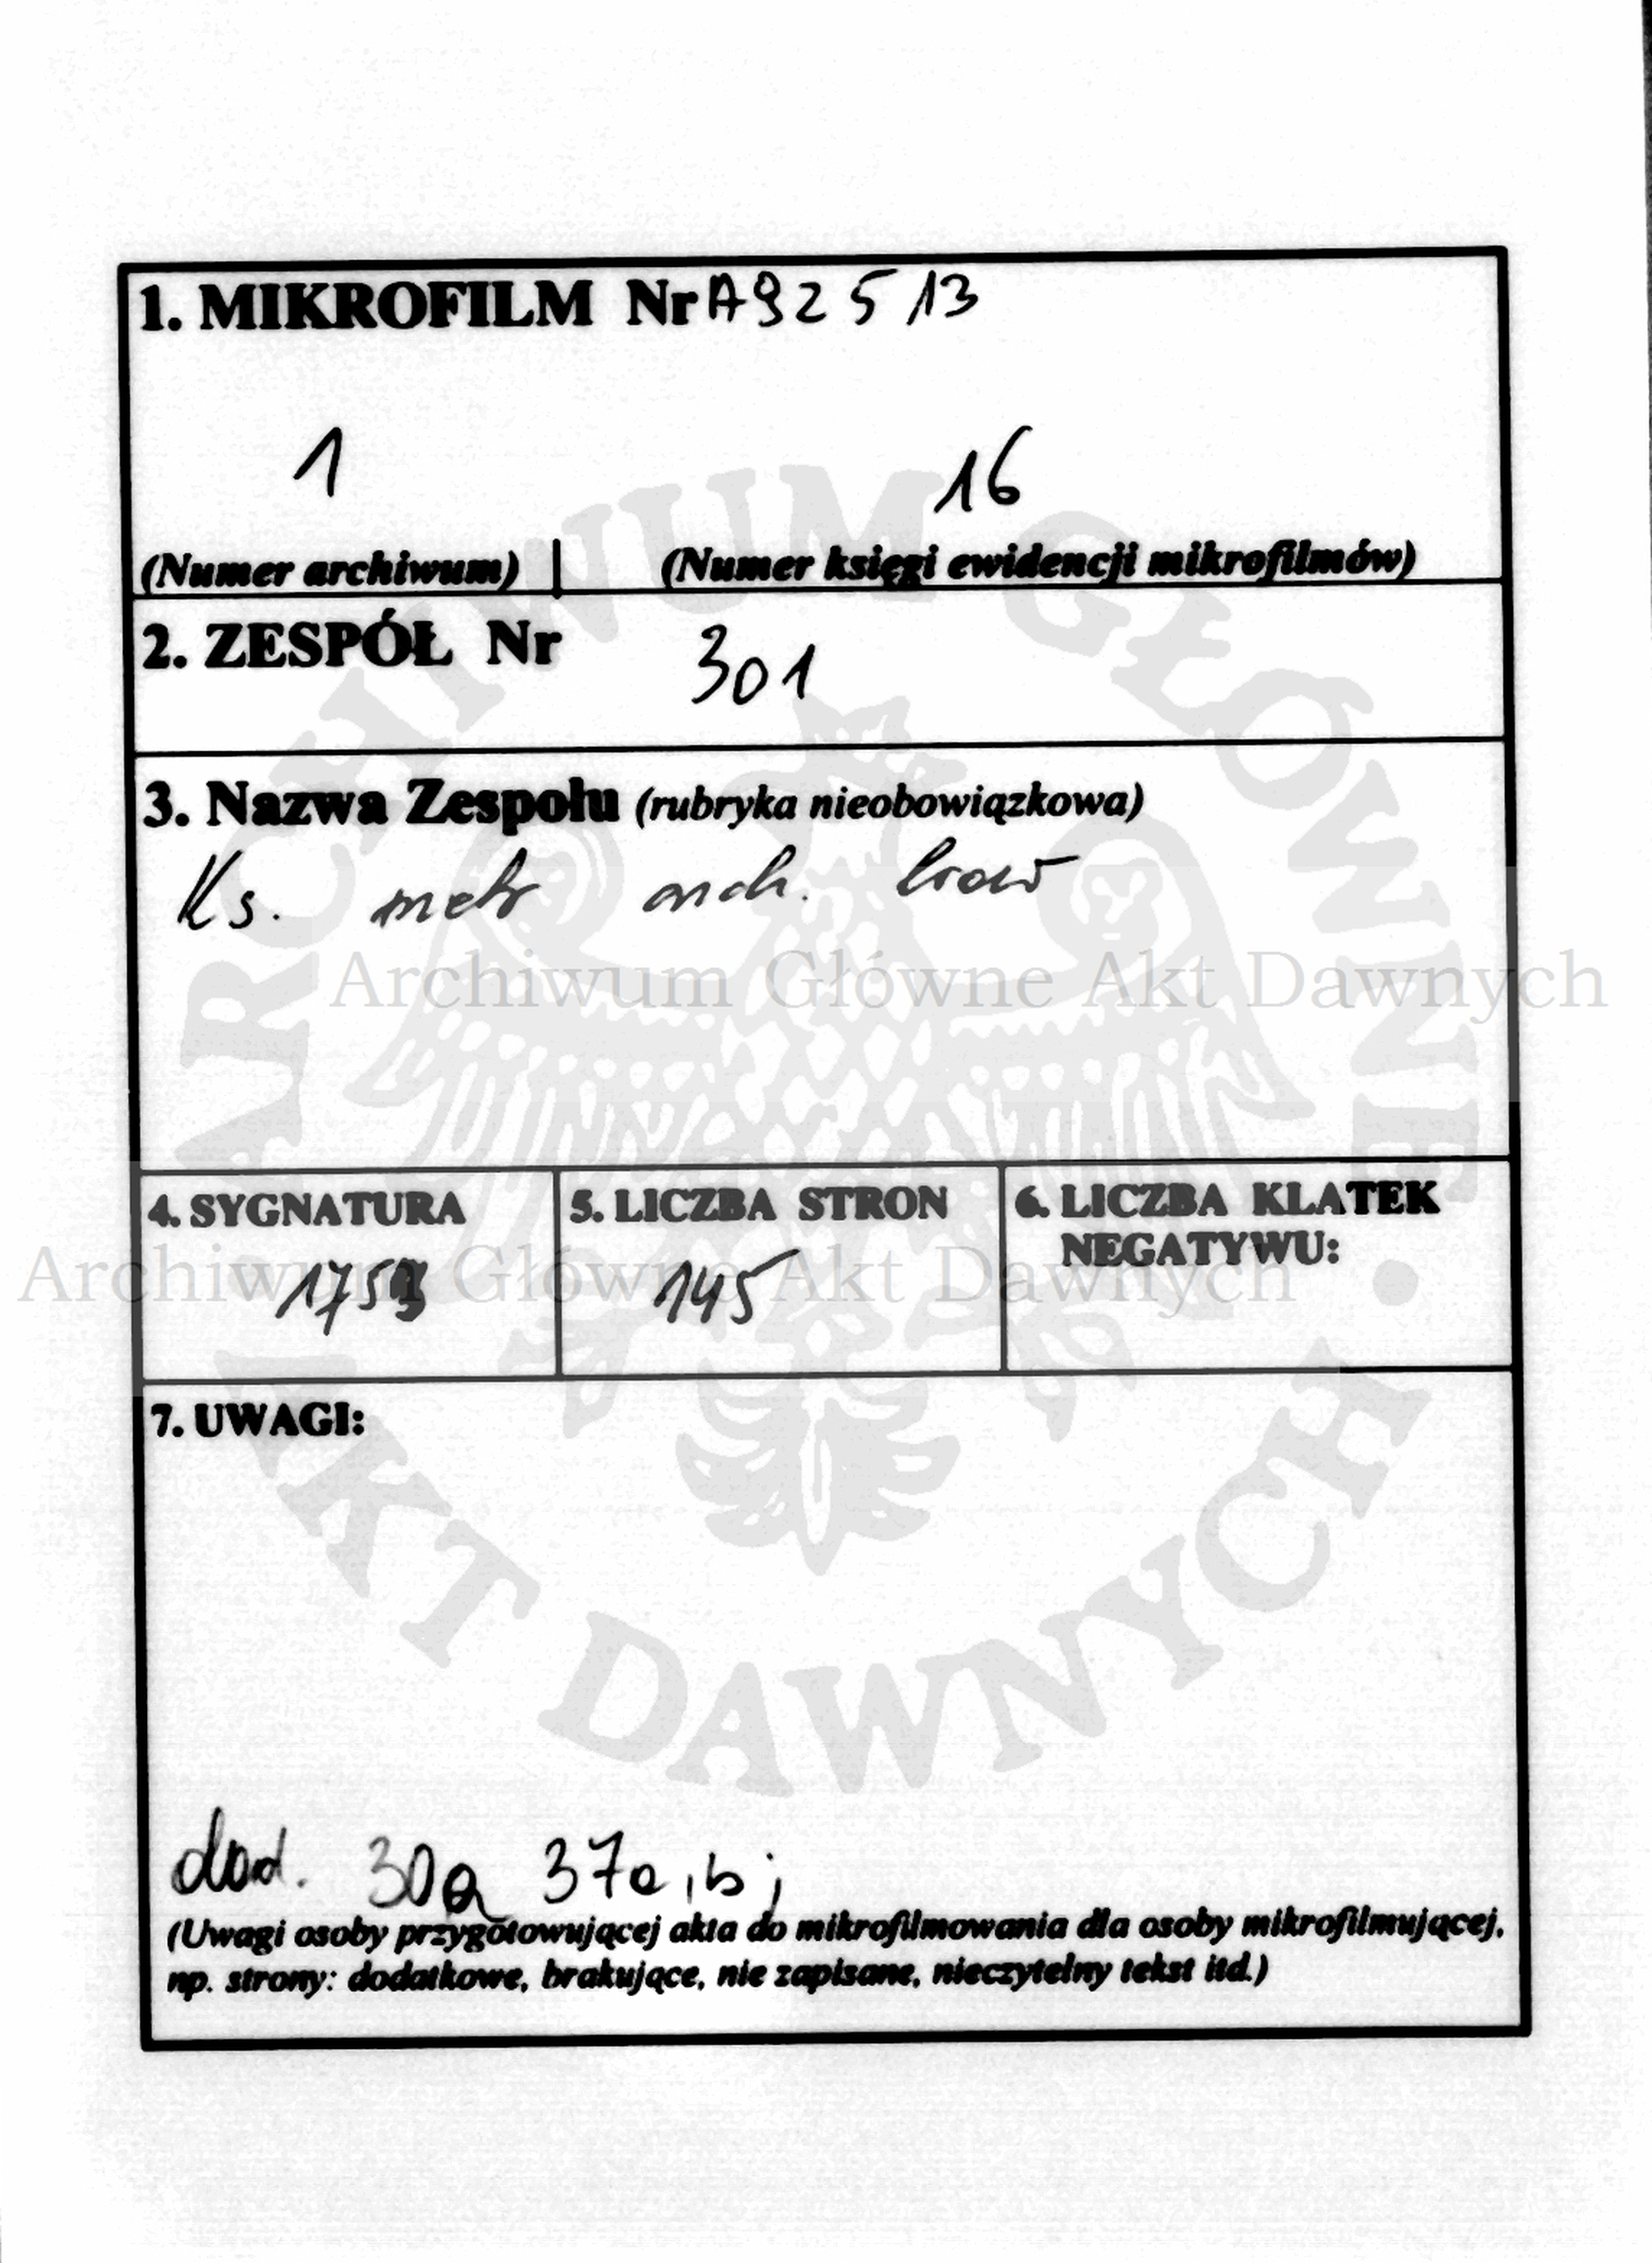 1. MIKROFILM Nr A92513
1 16
(Numer archiwum) | (Numer księgi ewidencji mikrofilmów)
2. ZESPÓŁ Nr 301
3. Nazwa Zespołu (rubryka nieobowiązkowa)
Ks. metr arch. lwow
Archiwum Główne Akt Dawnych
4. SYGNATURA 5. LICZBA STRON 6. LICZBA KLATEK
NEGATYWU:
145
Archiwum Główne Akt Dawnych
7. UWAGI:
ARCHIWUM GŁÓWNE • AKT DAWNYCH
dod. 30a 37a,b;
(Uwagi osoby przygotowującej akta do mikrofilmowania dla osoby mikrofilmującej,
np. strony: dodatkowe, brakujące, nie zapisane, nieczytelny tekst itd.)